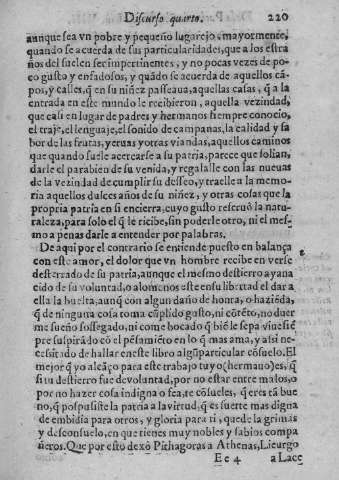 Discurso quarto. 220
aunque sea vn pobre y pequeño lugarejo, mayormente,
quando se acuerda de sus particularidades, que a los estra
ños del suelen ser impertinentes, y no pocas vezes de po-
co gusto y enfadosos, y quãdo se acuerda de aquellos cã-
pos, y calles, q̃ en su niñez passeaua, aquellas casas, q̃ a la
entrada en este mundo le recibieron, aquella vezindad,
que casi en lugar de padres y hermanos siempre conocio,
el traje, el lenguaje, el sonido de campanas, la calidad y sa
bor de las frutas, yeruas y otras viandas, aquellos caminos
que quando suele acercarse a su patria, parece que solian,
darle el parabien de su venida, y regalalle con las nueuas
de la vezindad de cumplir su desseo, y traelle a la memo-
ria aquellos dulces años de su niñez, y otras cosas que la
propria patria en si encierra, cuyo gusto reseruò la natu-
raleza, para solo el q̃ le recibe, sin poderle otro, ni el mes-
mo a penas darle a entender por palabras.
De aqui por el contrario se entiende puesto en balança
con este amor, el dolor que vn hombre recibe en verse
desterrado de su patria, aunque el mesmo destierro aya na
cido de su voluntad, o alomenos este en su libertad el dar a
ella la buelta, aunq̃ con algun daño de honra, o haziẽda,
q̃ de ninguna cosa toma cũplido gusto, ni cõtẽto, no duer
me sueño sossegado, ni come bocado q̃ biẽ le sepa, viue siẽ
pre suspirãdo cõ el pẽsamiẽto en lo q̃ mas ama, y assi ne-
cessitado de hallar en este libro algũ particular cõsuelo. El
mejor q̃ yo alcãço para este trabajo tuyo (hermano) es, q̃
si tu destierro fue de voluntad, por no estar entre malos, o
por no hazer cosa indigna o fea, te cõsueles, q̃ eres tã bue
no, q̃ pospusiste la patria a la virtud, q̃ es suerte mas digna
de embidia para otros, y gloria para ti, que de lagrimas
y desconsuelo, en que tienes muy nobles y sabios compa
ñeros. Que por esto dexò Pithagoras a Athenas, Licurgo
Ee 4 a Lace